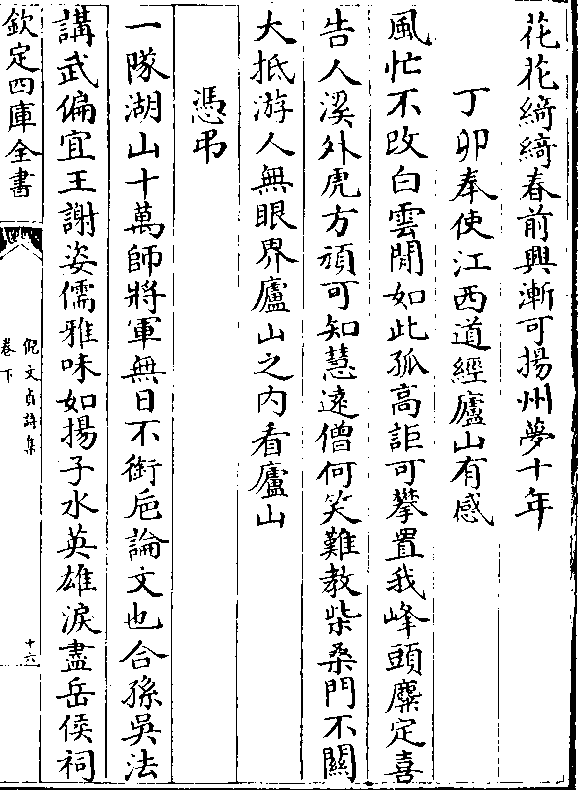 花花綺綺春前興漸可揚州夢十年
丁卯奉使江西道經廬山有感
風忙不改白雲閒如此孤高詎可攀置我峰頭麋定喜
告人溪外虎方頑可知慧遠僧何笑難教柴桑門不關
大抵游人無眼界廬山之內看廬山
憑弔
一隊湖山十萬師將軍無日不銜巵論文也合孫吳法
講武偏宜王謝姿儒雅味如揚子水英雄淚盡岳侯祠
欽定四庫全書
倪文貞詩集
卷下
十六